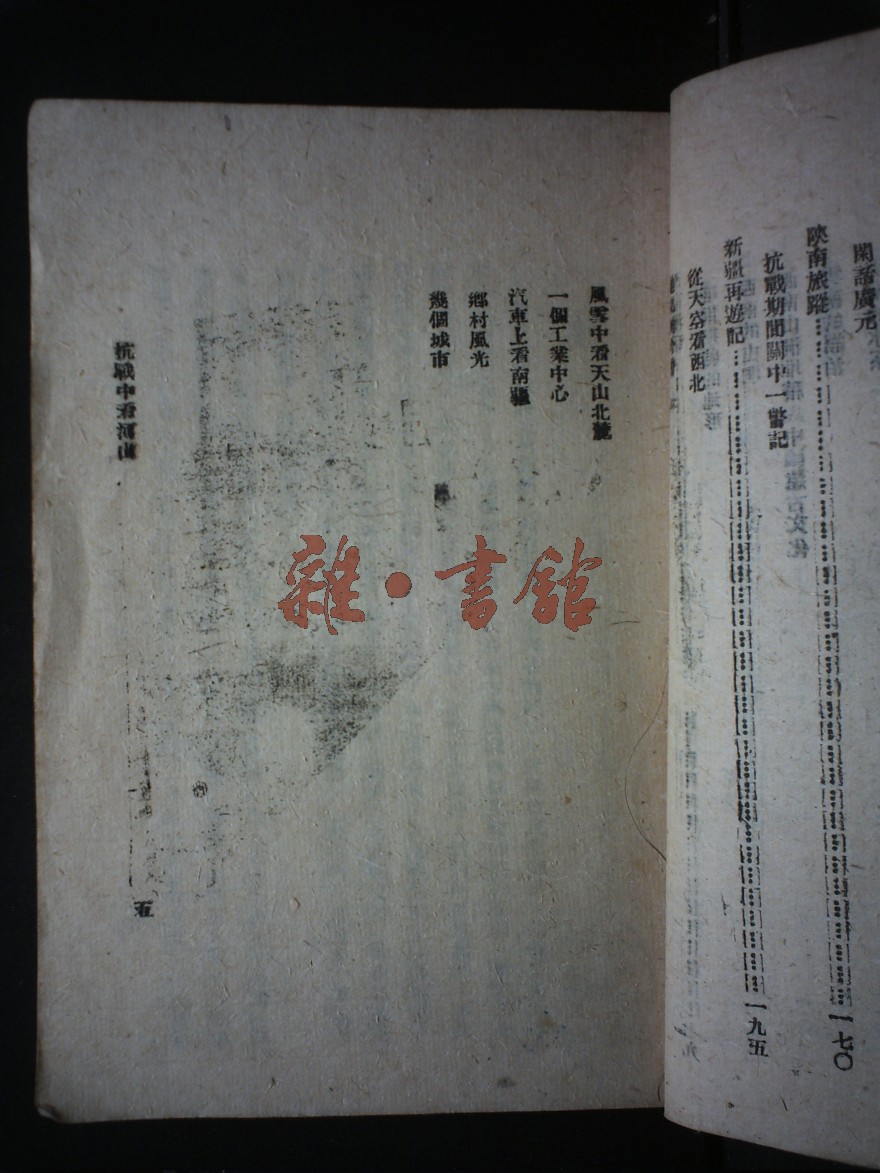 閑話廣元
陝南旅蹤 一七〇
抗戰期間關中一瞥記
新疆再遊記 一九五
從天容看西北
風雪中看天山北麓
一個工業中心
汽車上看南疆
鄉村風光
幾個城市
抗戰中看河山
五
雜·書館